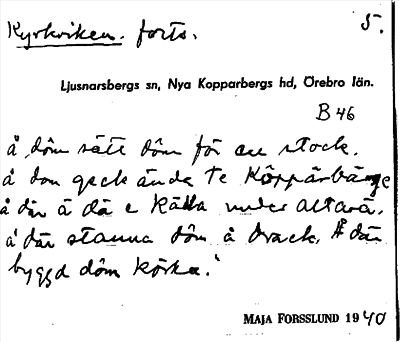 Kyrkviken. forts. 5.
Ljusnarsbergs sn, Nya Kopparbergs hd, Örebro län.
B 46
å döm sätt döm för en stock.
å don geck ända te Köppärbärge
å där ä dä e källa under altarä.
å där stanna döm å drack. Å där
byggd döm körka."
MAJA FORSSLUND 1940